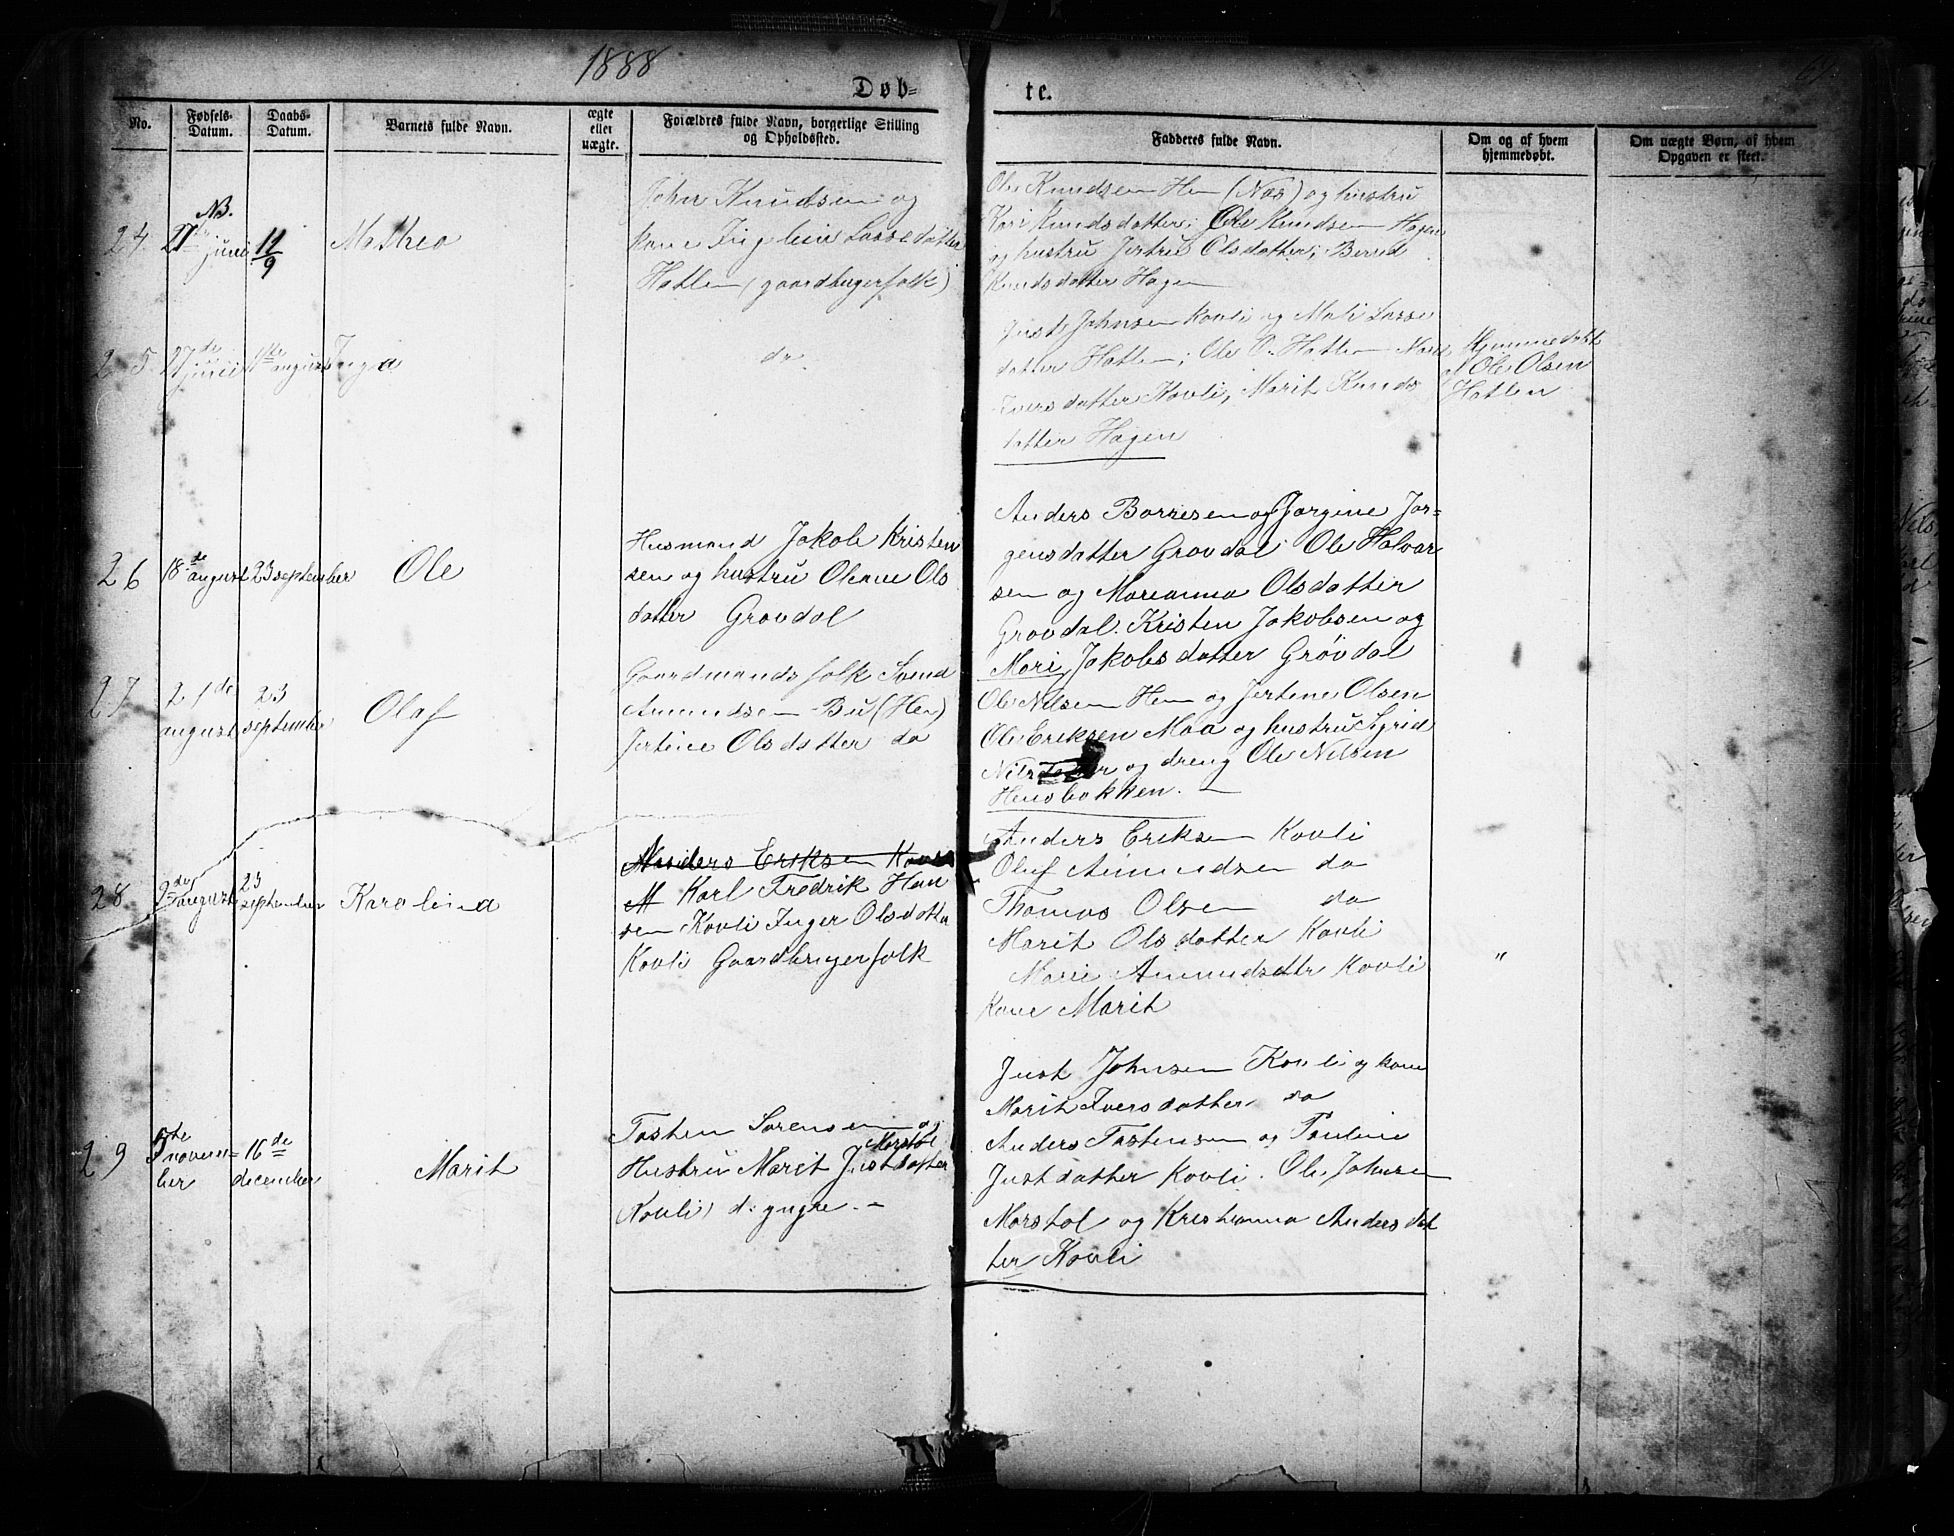 1888
Døb-
te.
69.
No.
Fødsels-
Datum.
Daabs-
Datum.
Barnets fulde Navn.
ægte
eller
uægte.
Forældres fulde Navn, borgerlige Stilling
og Opholdssted.
Fadderes fulde Navn.
Om og af hvem
hjemmedøbt.
Om uægte Børn, af hvem
Opgaven er skeet.
NB.
24
27
juni
11/9
Mathea
John Knudsen og
kone Ingelein Lassedatter
Hatlen (gaardbrugerfolk)
Ole Knudsen Hen (Nos) og hustru
Kari Knudsdatter; Ole Knudsen Hagen
og hustru Jertrud Olsdatter; Bered
Knudsdatter Hagen
25.
27de
juni
1ste august
Inga
do
Just Johnsen Kavli og Mali Lasse
datter Hatlen; Ole O. Hatlen
Iversdatter Kavli, Marit Knuds
datter Hagen
Hjemmedøbt
af Ole Olsen
Hatlen
26
18de
august
23 september
Ole
Husmand Jakob Kristen
sen og hustru Olene Ols
datter Grøvdal
Anders Børresen og Jørgine Jør-
gensdatter Grøvdal. Ole Halvar
sen og Marianna Olsdatter
Grøvdal. Kristen Jakobsen og
Mari Jakobsdatter Grøvdal
27
21de
august
23
september
Olaf
Gaardmandsfolk Svend
Amundsen Bu (Hen)
Jertine Olsdatter do
Ole Nilsen Hen og Jertine Olsen
Ole Eriksen Moa og hustru Sigrid
Nilsdatter og dreng Ole Nilsen
Hensbakken. –
28
2de
august
23
september
Karolina
Anders Eriksen Kavli
M Karl Fredrik Han
sen Kavli Inger Olsdatter
Kavli Gaardbrugerfolk
Anders Eriksen Kavli
Oluf Amundsen do
Thomas Olsen do
Marit Olsdatter Kavli
Marie Amundsdtr Kavli
kone Marit
"
29
5te
novem-
ber
16de
december
Marit
Tosten Sørensen og
Marstøl
Hustru Marit Justdatter
Kavli d. yngre. –
Just Johnsen Kavli og kone
Marit Iversdatter do
Anders Tostensen og Pauline
Justdatter Kavli. Ole Johnsen
Marstøl og Kristianna Andersdat
ter Kavli